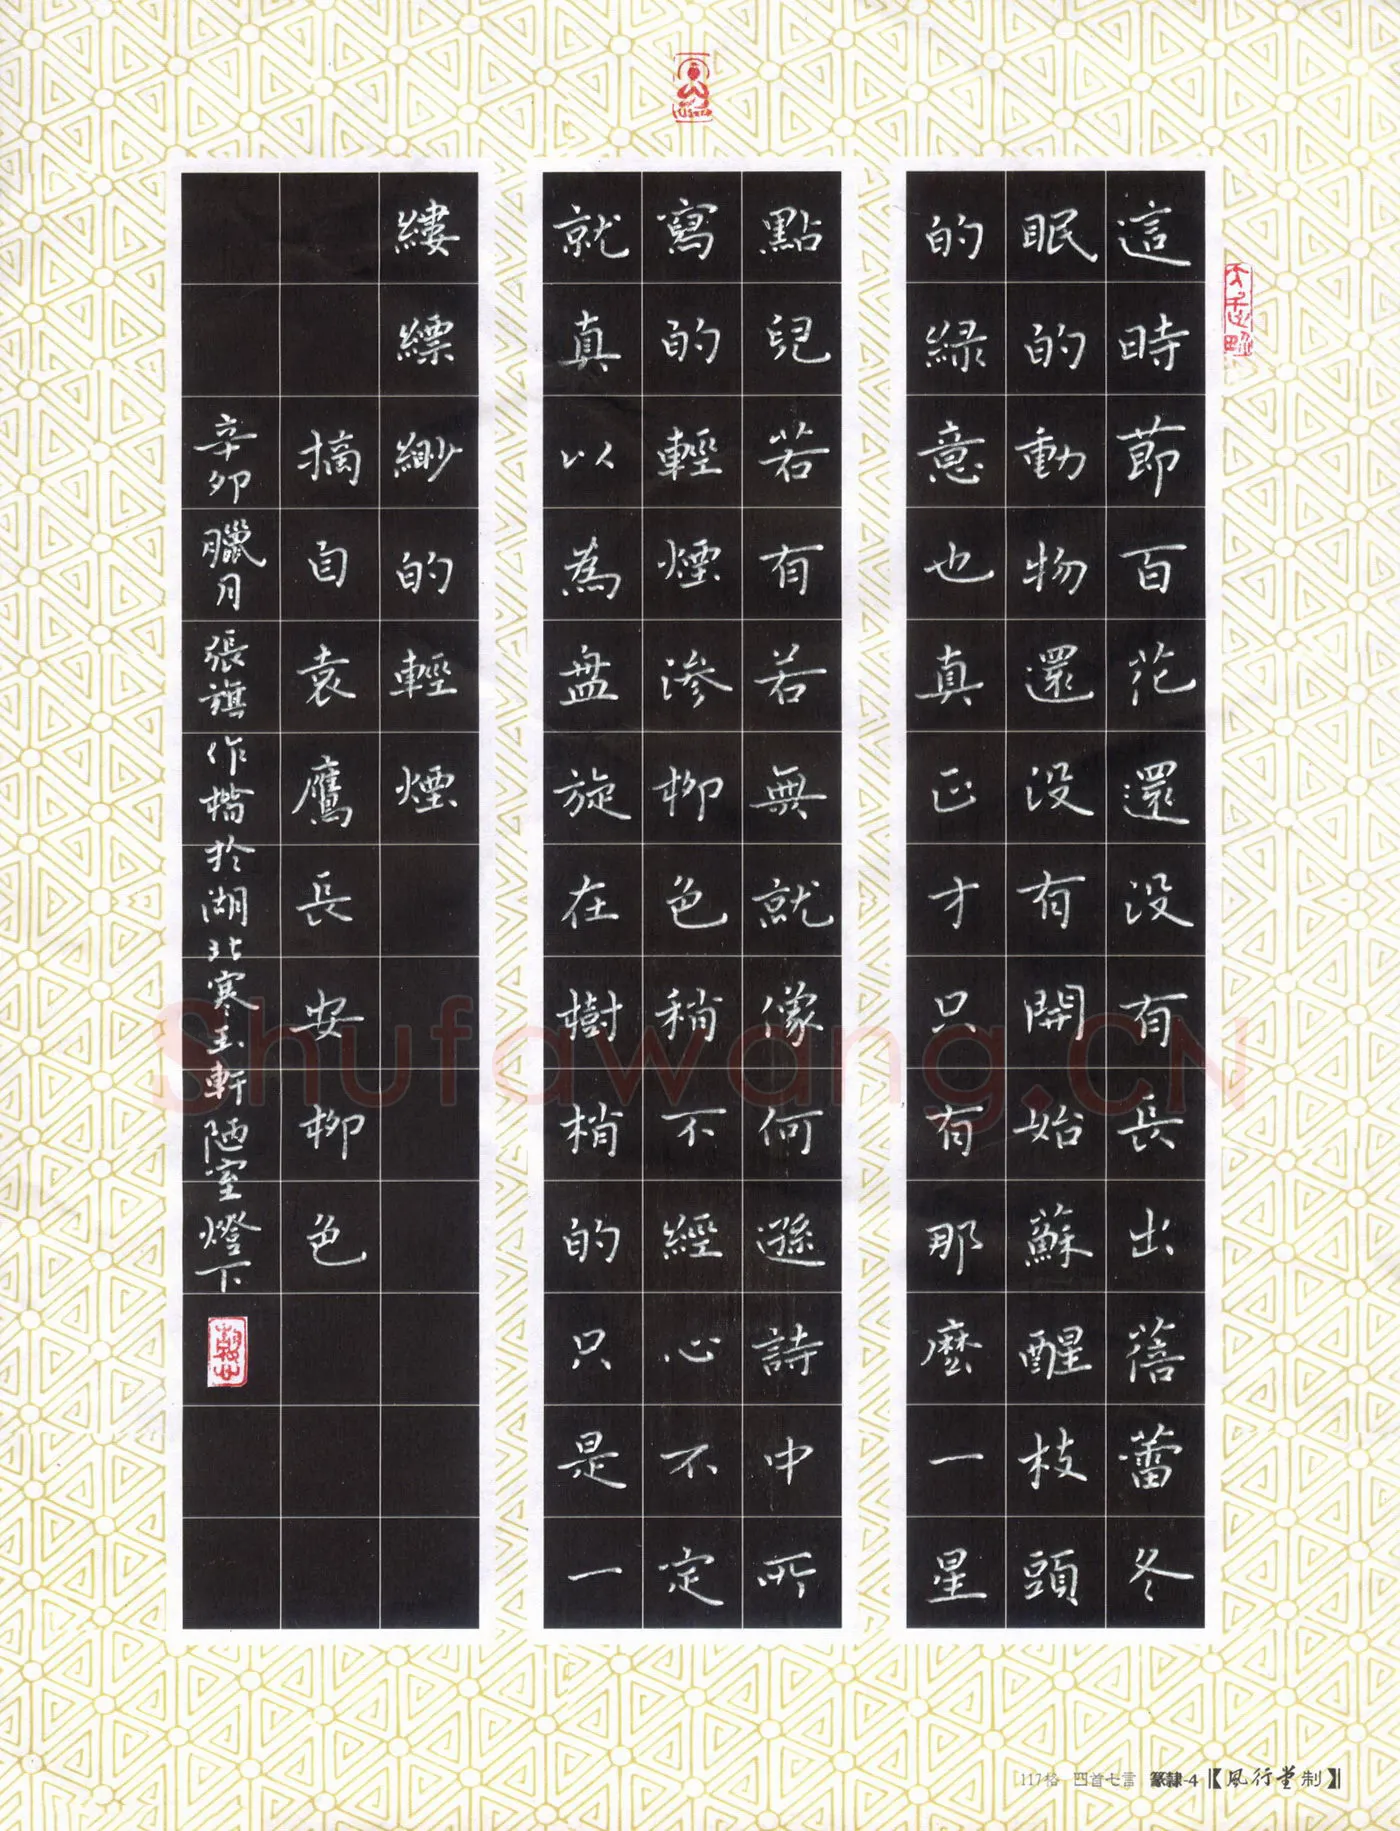 這時節百花還没有長出蓓蕾冬
眠的動物還没有開始蘇醒枝頭
的緑意也真正才只有那麽一星
點兒若有若無就像何遜詩中所
寫的輕煙渗柳色稍不經心不定
就真以為盘旋在樹梢的只是一
縷縹緲的輕煙
摘自袁鷹長安柳色
辛卯臘月張旗作楷於湖北寒玉軒陋室燈下
Shufawang.CN
117格 四首七言 篆隸-4【風行堂制】